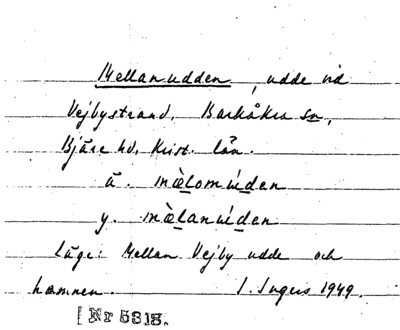 Mellanudden, udde vid
Vejbystrand, Barkåkra sn,
Bjäre hd, Krist. län.
ä. mæ̀lomúden
y. mæ̀lanúden
Läge: Mellan Vejby udde och
hamnen. I. Ingers 1949.
[Nr 5315.